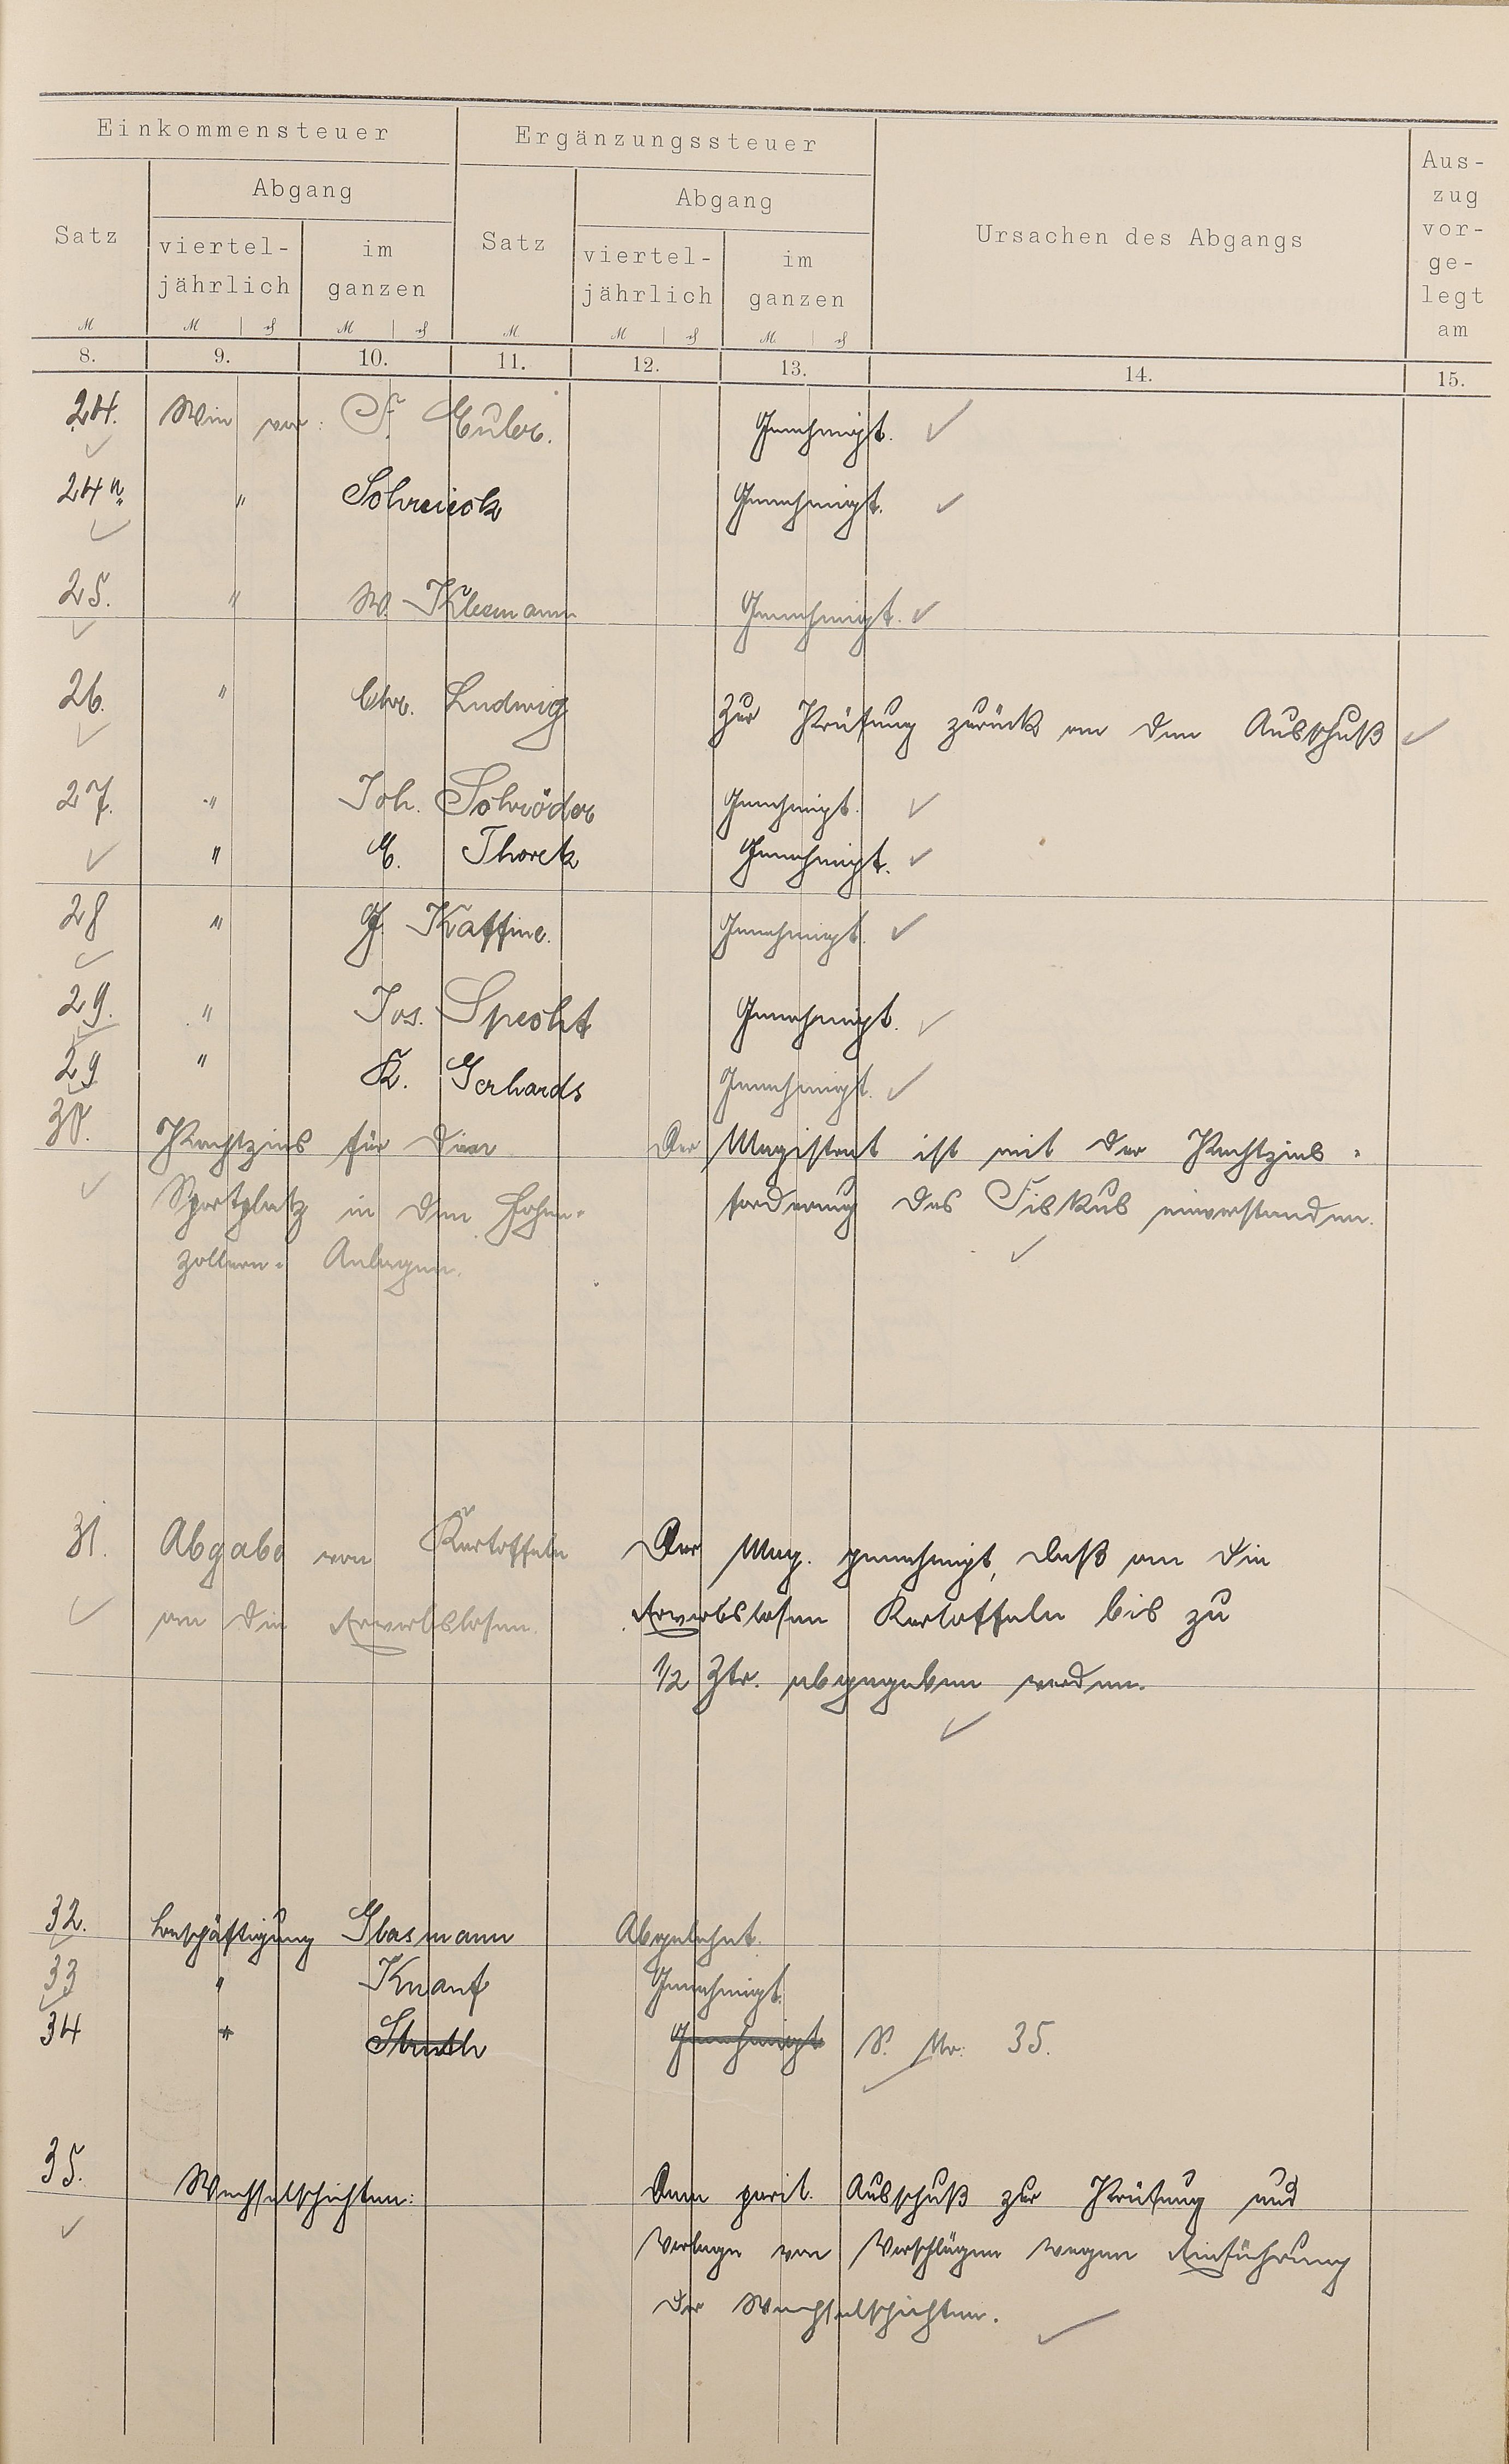 Einkommensteuer Ergänzungssteuer Ursachen des Abgangs Aus-
zug
vor-
ge-
legt
am
Satz Abgang Satz Abgang
viertel-
jährlich im
ganzen viertel-
jährlich im
ganzen
M M ₰ M ₰ M M ₰ M ₰
8. 9. 10. 11. 12. 13. 14. 15.
24. Wie vor: F. Euler. Genehmigt.
24a " Schreieck Genehmigt.
25. " W. Kleemann Genehmigt.
26. " Chr. Ludwig Zur Prüfung zurück an den Ausschuß
27. " Joh. Schröder Genehmigt.
" E. Thorek Genehmigt.
28 " G. Kaffine. Genehmigt.
29. " Jos. Specht Genehmigt.
29 " K. Gerhards Genehmigt.
30. Pachtzins für den Der Magistrat ist mit der Pachtzins-
Sportplatz in den Hohen- forderung des Fiskus einverstanden.
zollern- Anlagen.
31. Abgabe von Kartoffeln Der Mag. genehmigt, daß an die
an die Erwerbslosen. Erwerbslosen Kartoffeln bis zu
1/2 Ztr. abgegeben werden.
32. Beschäftigung Glasmann Abgelehnt.
33 " Knauf Genehmigt.
34 " Struth Genehmigt S. Nr. 35.
35. Wechselschichten: Dem parit. Ausschuß zur Prüfung und
Vorlage von Vorschlägen wegen Einführung
der Wechselschichten.